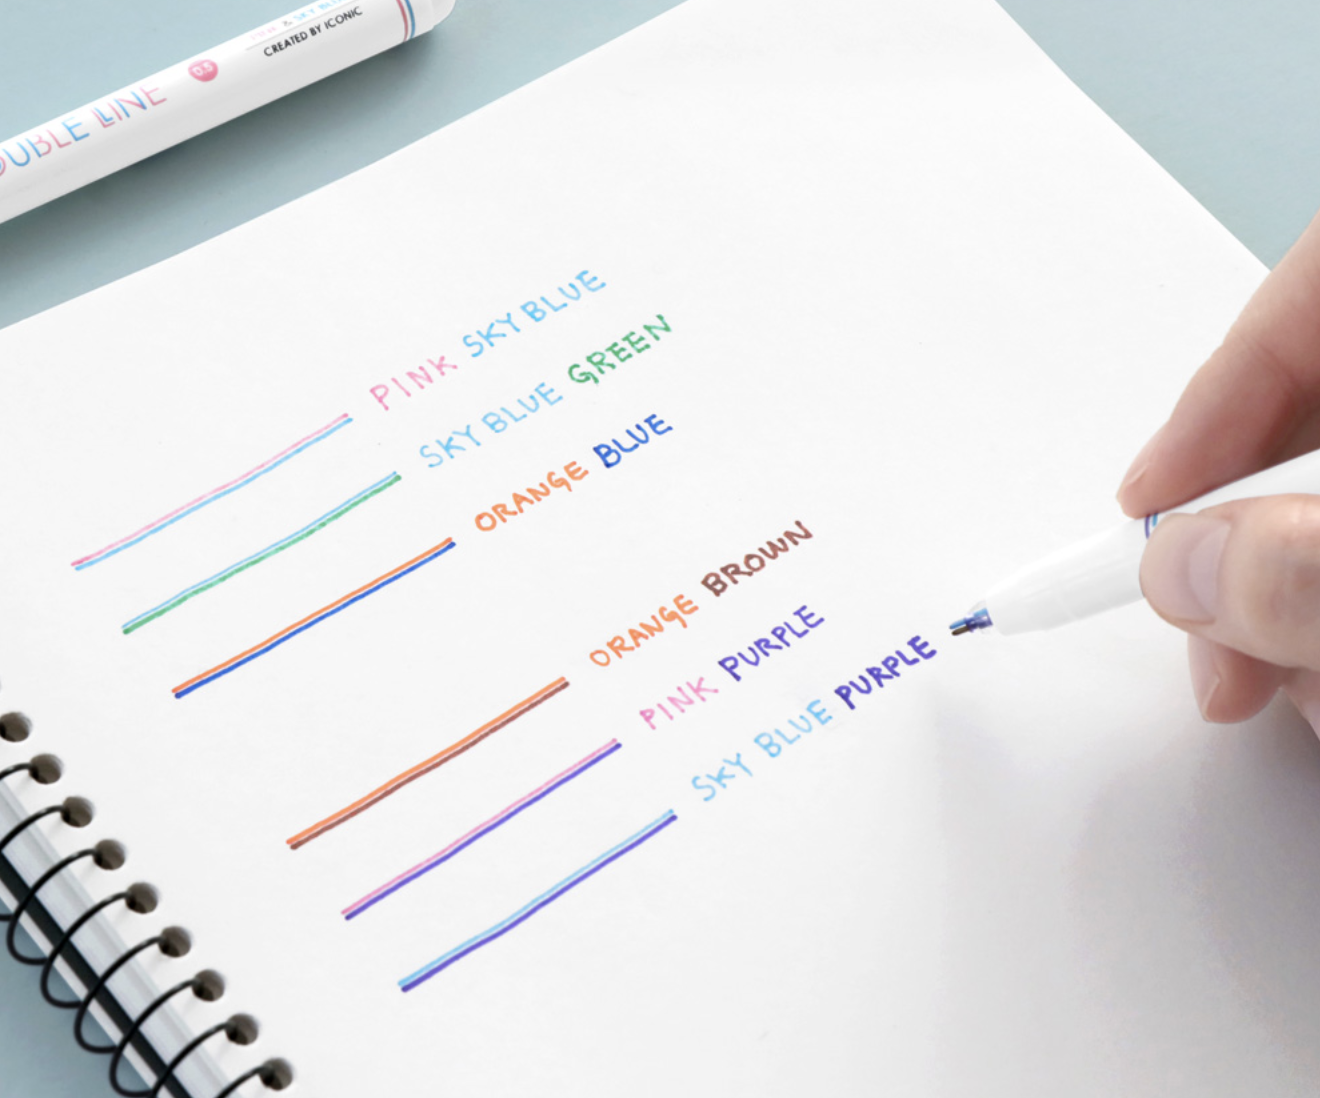 CREATED BY ICONIC
LINE
0.5
PINK SKY BLUE
SKY BLUE GREEN
ORANGE BLUE
ORANGE BROWN
PINK PURPLE
SKY BLUE PURPLE